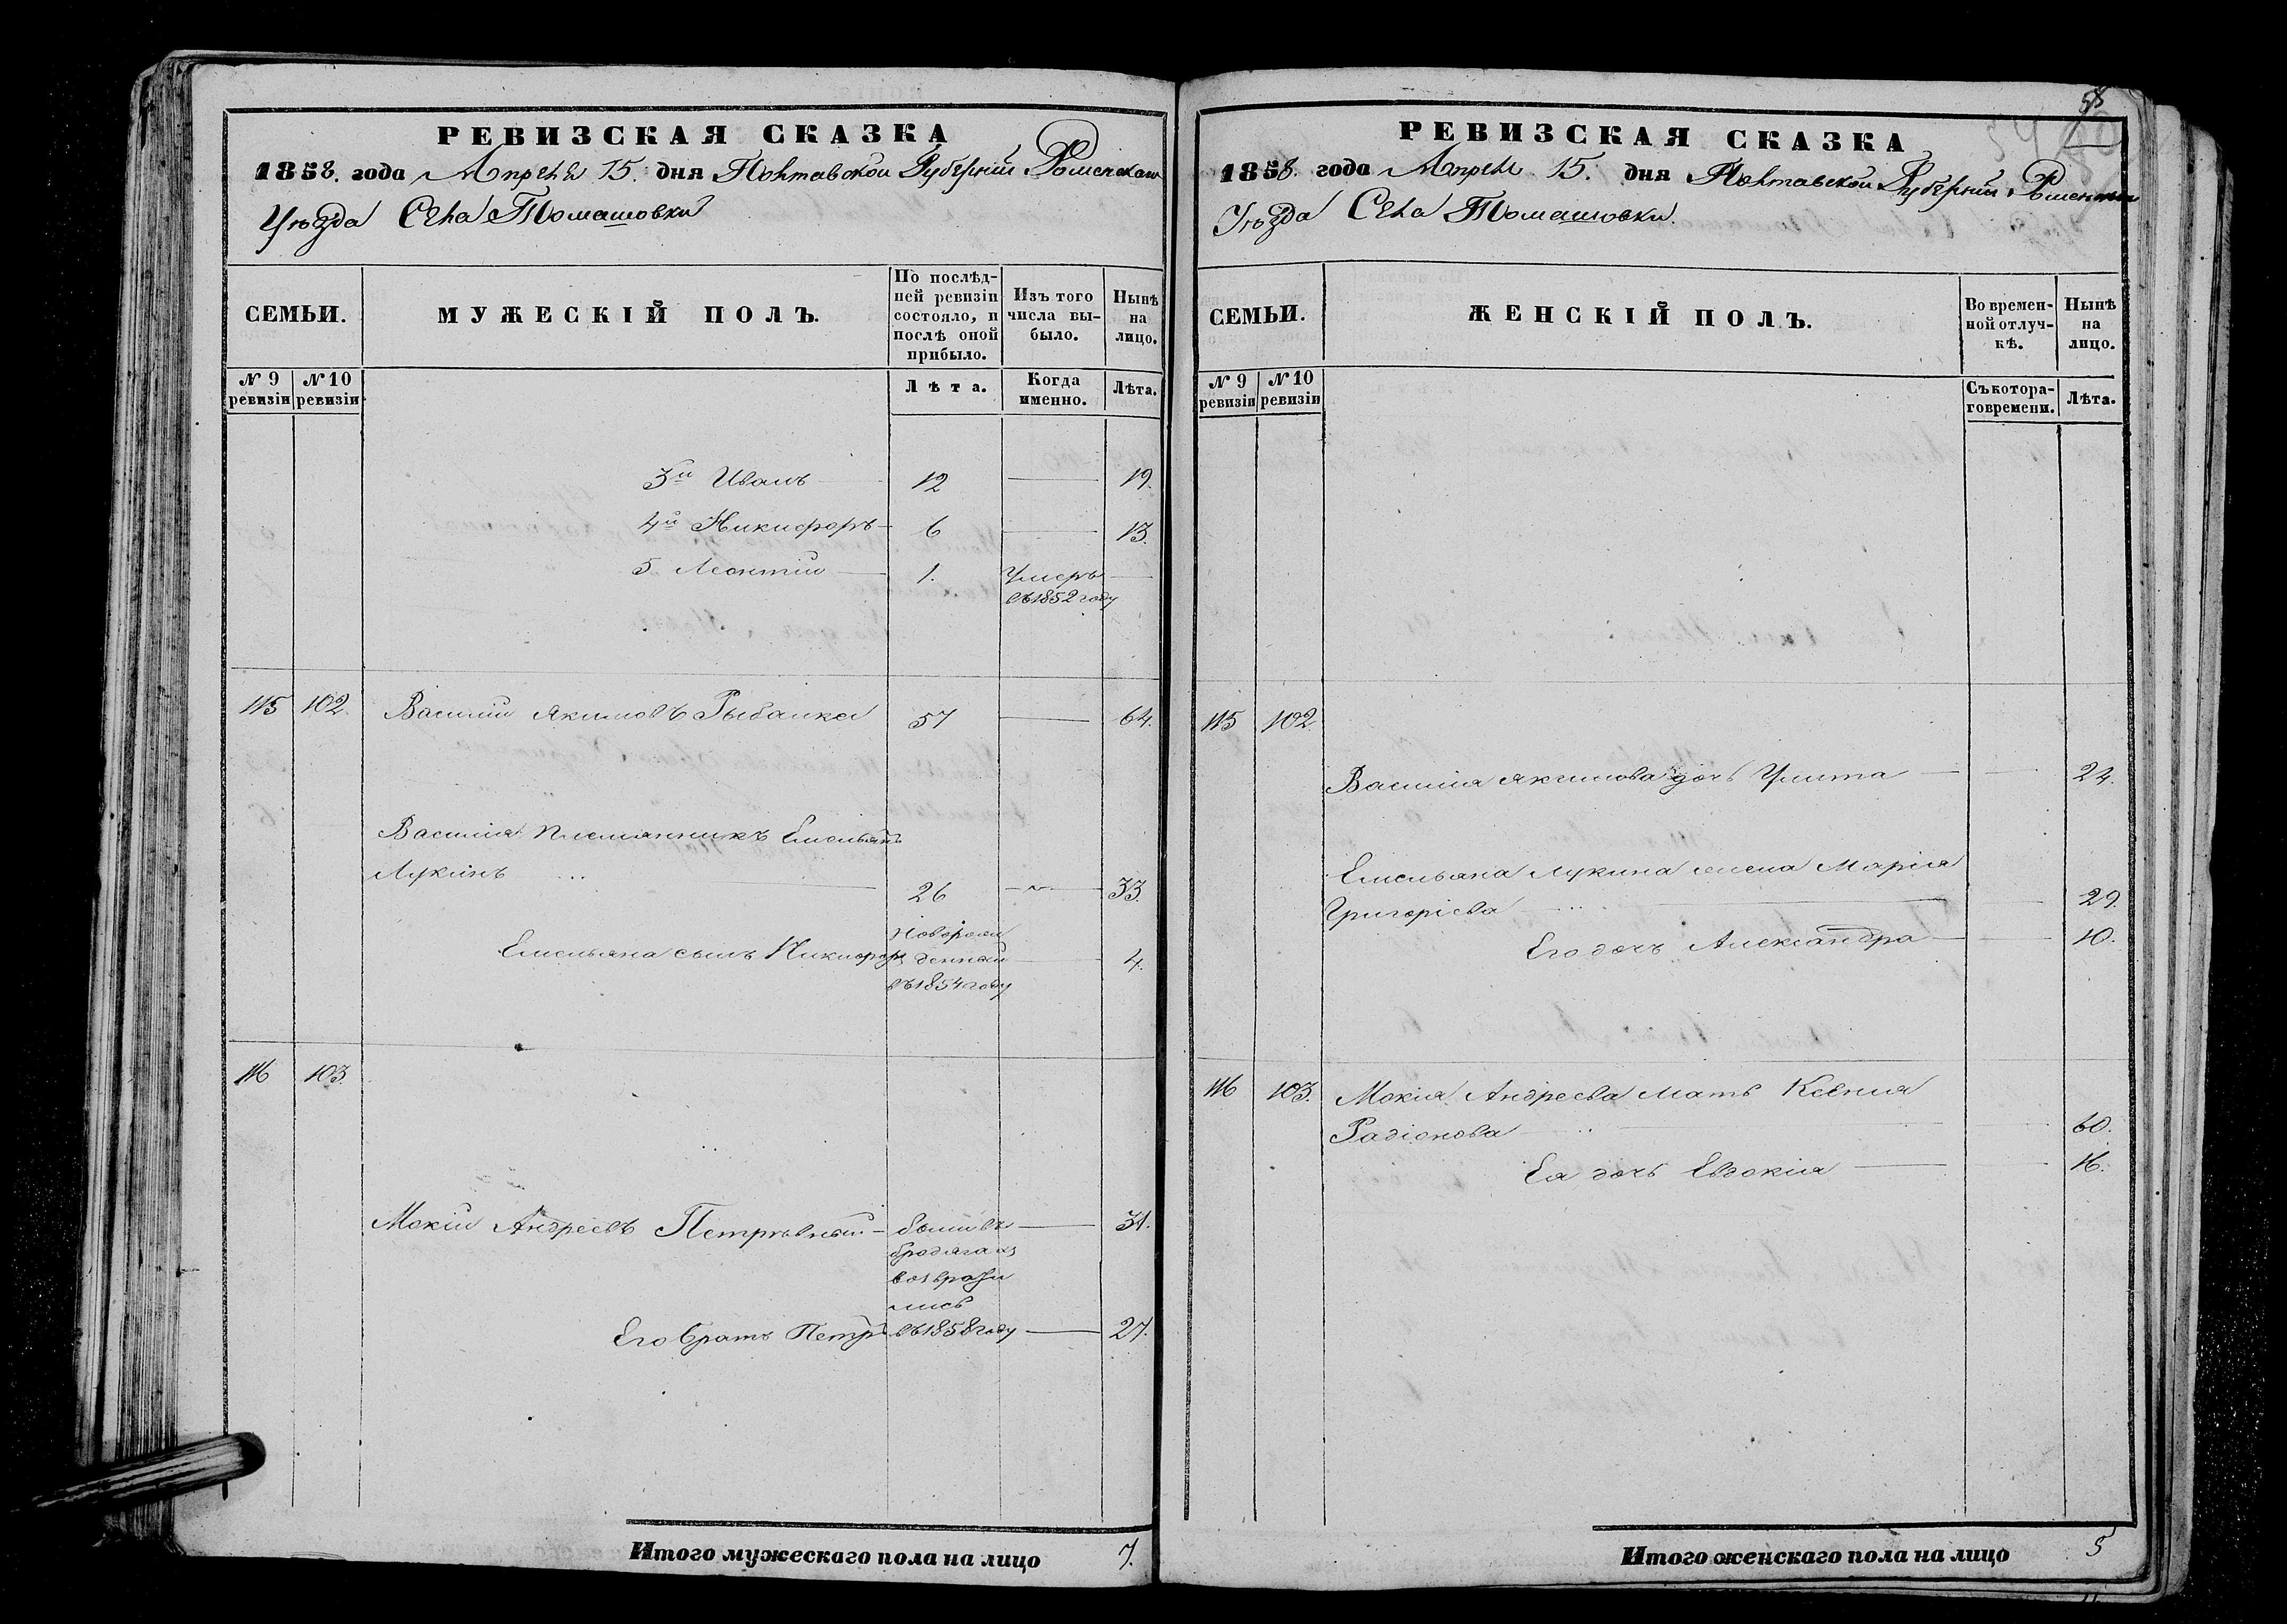 РЕВИЗСКАЯ СКАЗКА
1858. года Апреля 15. дня Полтавской Губернии Роменскаго
Уѣзда Села Томашовки
СЕМЬИ.
МУЖЕСКІЙ ПОЛЪ.
По послѣд-
ней ревизіи
состояло, и
послѣ оной
прибыло.
Изъ того
числа вы-
было.
Нынѣ
на
лицо.
№ 9
ревизіи
№ 10
ревизіи
Лѣта.
Когда
именно.
Лѣта.
3й Иванъ 12 19.
4й Никифоръ 6 13.
5 Леонтій 1. Умеръ
въ 1852 году
115 102. Василій Якимовъ Рыбалка 57 64.
Василія племянникъ Емельянъ
Лукинъ 26 33.
Емельяна сынъ Никифоръ новорож
денный 4.
въ 1854 году
116 103.
Мокій Андреевъ Петровный были въ 31.
бродягахъ
возврати
лись
Его братъ Петръ въ 1858 году 27.
Итого мужескаго пола на лицо 7.
58
РЕВИЗСКАЯ СКАЗКА
1858. года Апреля 15. дня Полтавской Губернии Роменскаго
Уѣзда Села Томашовки.
СЕМЬИ.
ЖЕНСКІЙ ПОЛЪ.
Во времен-
ной отлуч-
кѣ.
Нынѣ
на
лицо.
№ 9
ревизіи
№ 10
ревизіи
Съ котора-
го времени.
Лѣта.
115 102.
Василія Якимова дочь Улита 24.
Емельяна Лукина жена Марія
Григоріева 29.
Его дочь Александра 10.
116 103. Мокія Андреева мать Ксенія
Радіонова 60.
Ея дочь Евдокія 16.
Итого женскаго пола на лицо 5